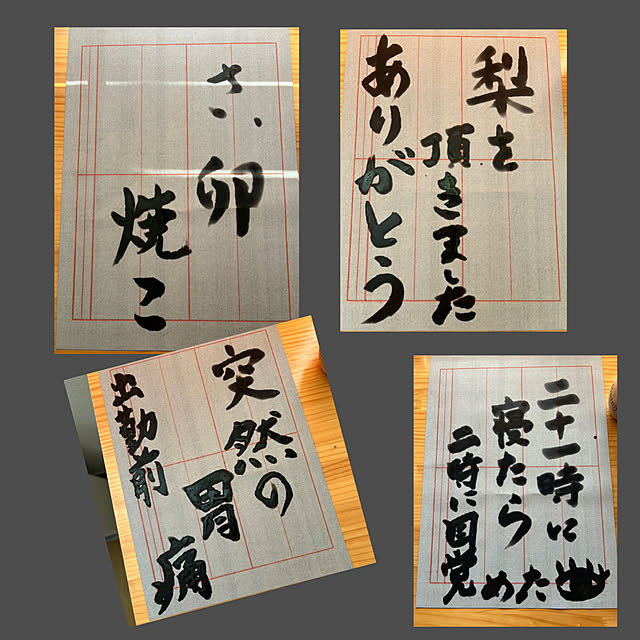 さ、卵
焼こ
梨を
頂きました
ありがとう
突然の
胃痛
出勤前
二十一時に
寝たら
二時に目覚
めた